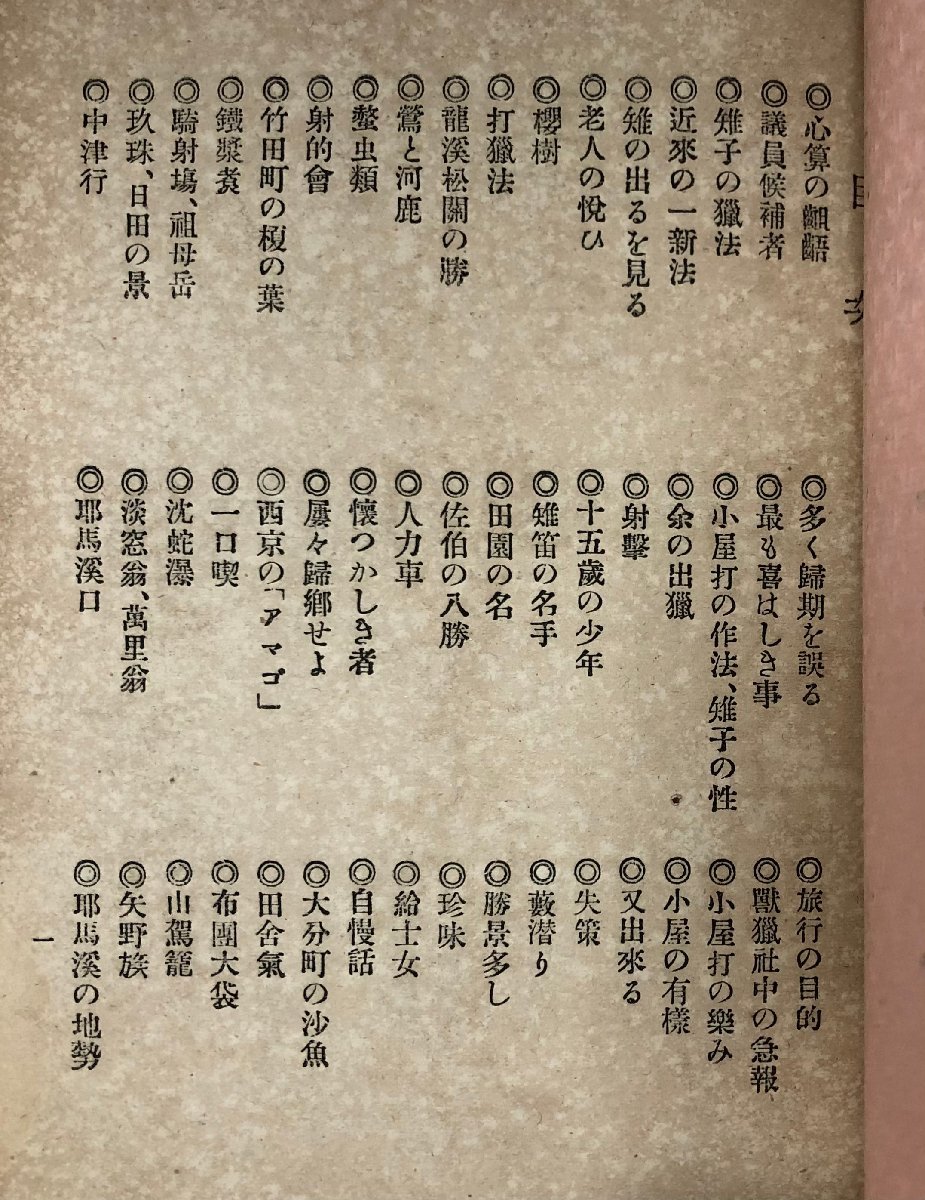 目次
◎心算の齟齬 ◎多く歸期を誤る ◎旅行の目的
◎議員候補者 ◎最も喜はしき事 ◎獸獵社中の急報
◎雉子の獵法 ◎小屋打の作法、雉子の性 ◎小屋打の樂み
◎近來の一新法 ◎余の出獵 ◎小屋の有樣
◎雉の出るを見る ◎射擊 ◎又出來る
◎老人の悅ひ ◎十五歲の少年 ◎失策
◎櫻樹 ◎雉笛の名手 ◎藪潜り
◎打獵法 ◎田園の名 ◎勝景多し
◎龍溪松關の勝 ◎佐伯の八勝 ◎珍味
◎鶯と河鹿 ◎人力車 ◎給士女
◎螯虫類 ◎懷つかしき者 ◎自慢話
◎射的會 ◎屢々歸鄕せよ ◎大分町の沙魚
◎竹田町の榎の葉 ◎西京の「アマゴ」 ◎田舍氣
◎鐵漿煑 ◎一口喫 ◎布團大袋
◎騎射塲、祖母岳 ◎沈蛇瀑 ◎山駕籠
◎玖珠、日田の景 ◎淡窓翁、萬里翁 ◎矢野族
◎中津行 ◎耶馬溪口 ◎耶馬溪の地勢
一